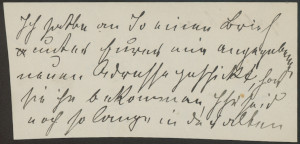 Ich hatte an Io einen Brief
unter Eurer mir angegebenen
neuen Adresse geschickt hat
sie ihn bekommen Ihr seid
noch so lange in der alten